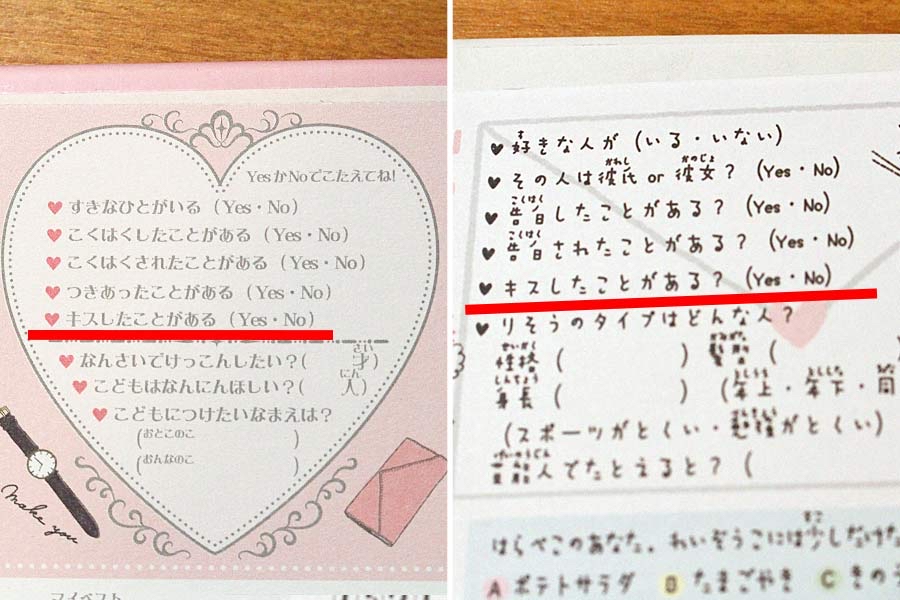 YesかNoでこたえてね!
すきなひとがいる (Yes・No)
こくはくしたことがある (Yes・No)
こくはくされたことがある (Yes・No)
つきあったことがある (Yes・No)
キスしたことがある (Yes・No)
なんさいでけっこんしたい?( 才)
さい
こどもはなんにんほしい?( 人)
にん
こどもにつけたいなまえは?
(おとこのこ )
(おんなのこ )
make you
マイベスト
好きな人が (いる・いない)
す
その人は彼氏 or 彼女? (Yes・No)
かれし かのじょ
告白したことがある? (Yes・No)
こくはく
告白されたことがある? (Yes・No)
こくはく
キスしたことがある? (Yes・No)
りそうのタイプはどんな人?
性格 ( ) (
せいかく
身長 ( ) (年上・年下・同
しんちょう としうえ としした
(スポーツがとくい・勉強がとくい)
べんきょう
芸能人でたとえると? (
げいのうじん
はらぺこのあなた。れいぞうこには少しだけた
すこ
A ポテトサラダ B たまごやき C きのう